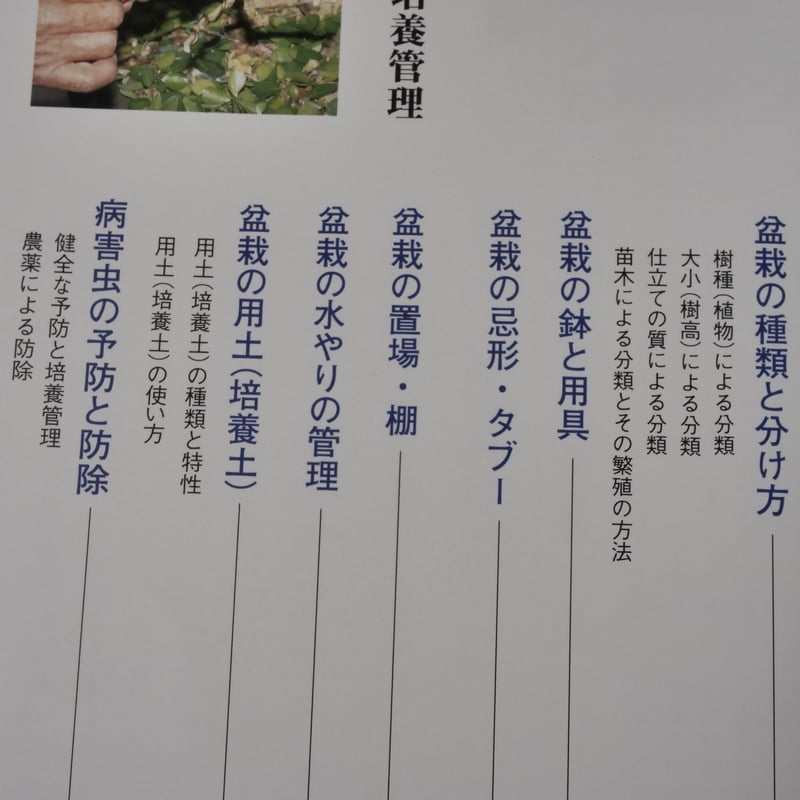 培養管理
盆栽の種類と分け方
樹種（植物）による分類
大小（樹高）による分類
仕立ての質による分類
苗木による分類とその繁殖の方法
盆栽の鉢と用具
盆栽の忌形・タブー
盆栽の置場・棚
盆栽の水やりの管理
盆栽の用土（培養土）
用土（培養土）の種類と特性
用土（培養土）の使い方
病害虫の予防と防除
健全な予防と培養管理
農薬による防除